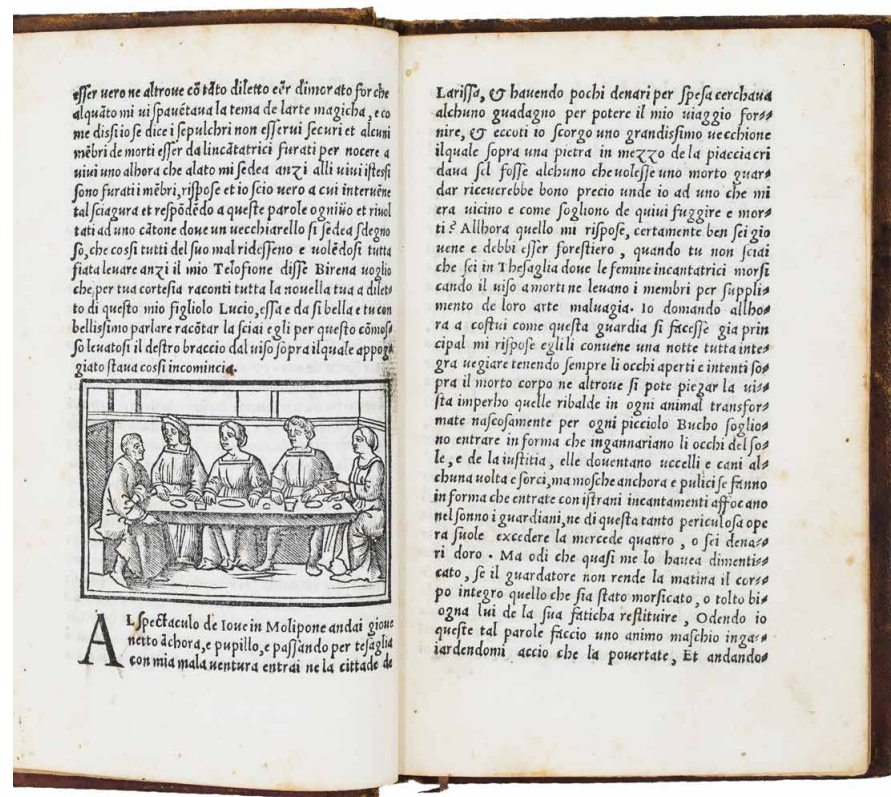 esser uero ne altroue cõ tãto diletto eẽr dimorato for che
alquãto mi ui spauẽtaua la tema de larte magicha, e co
me dissi io se dice i sepulchri non esserui securi et alcuni
mẽbri de morti esser da lincãtatrici furati per nocere a
uiui uno alhora che alato mi sedea anzi alli uiui istessi
sono furati i mẽbri, rispose et io scio uero a cui interuẽne
tal sciagura et respõdẽdo a queste parole ogniũo et riuol
tati ad uno cãtone doue un uecchiarello si sedea sdegno
so, che cossi tutti del suo mal ridesseno e uolẽdosi tutta
fiata leuare anzi il mio Telofione disse Birena uoglio
che, per tua cortesia raconti tutta la nouella tua a dilet⸗
to di questo mio figliolo Lucio, essa e da si bella e tu con
bellissimo parlare racõtar la sciai egli per questo cõmos⸗
so leuatosi il destro braccio dal uiso sopra ilquale appog⸗
giato staua cossi incomincia.
AL spectaculo de Ioue in Molipone andai gioue
netto ãchora, e pupillo, e passando per tesaglia
con mia mala uentura entrai ne la cittade de
Larissa, & hauendo pochi denari per spesa cerchaua
alchuno guadagno per potere il mio uiaggio for⸗
nire, & eccoti io scorgo uno grandissimo uecchione
ilquale sopra una pietra in mezzo de la piaccia cri
daua sel fosse alchuno che uolesse uno morto guar⸗
dar riceucrebbe bono precio unde io ad uno che mi
era uicino e come sogliono de quiui fuggire e mor⸗
ti? Allhora quello mi rispose, certamente ben sei gio
uene e debbi esser forestiero, quando tu non sciai
che sei in Thesaglia doue le femine incantatrici morsi
cando il uiso a morti ne leuano i membri per suppli⸗
mento de loro arte maluagia. Io domando allho⸗
ra a costui come questa guardia si facesse gia prin
cipal mi rispose egli li conuene una notte tutta inte⸗
gra uegiare tenendo sempre li occhi aperti e intenti so⸗
pra il morto corpo ne altroue si pote piegar la ui⸗
sta imperho quelle ribalde in ogni animal transfor⸗
mate nascosamente per ogni picciolo Bucho soglio⸗
no entrare in forma che ingannariano li occhi del so⸗
le, e de la iustitia, elle douentano uccelli e cani al⸗
chuna uolta e sorci, ma mosche anchora e pulici se fanno
in forma che entrate con istrani incantamenti affocano
nel sonno i guardiani, ne di questa tanto periculosa ope
ra suole excedere la mercede quattro, o sei dena⸗
ri doro. Ma odi che quasi me lo hauea dimenti⸗
cato, se il guardatore non rende la matina il cor⸗
po integro quello che sia stato morsicato, o tolto bi⸗
ogna lui de la sua faticha restituire, Odendo io
queste tal parole faccio uno animo maschio inga⸗
iardendomi accio che la pouertate, Et andando⸗